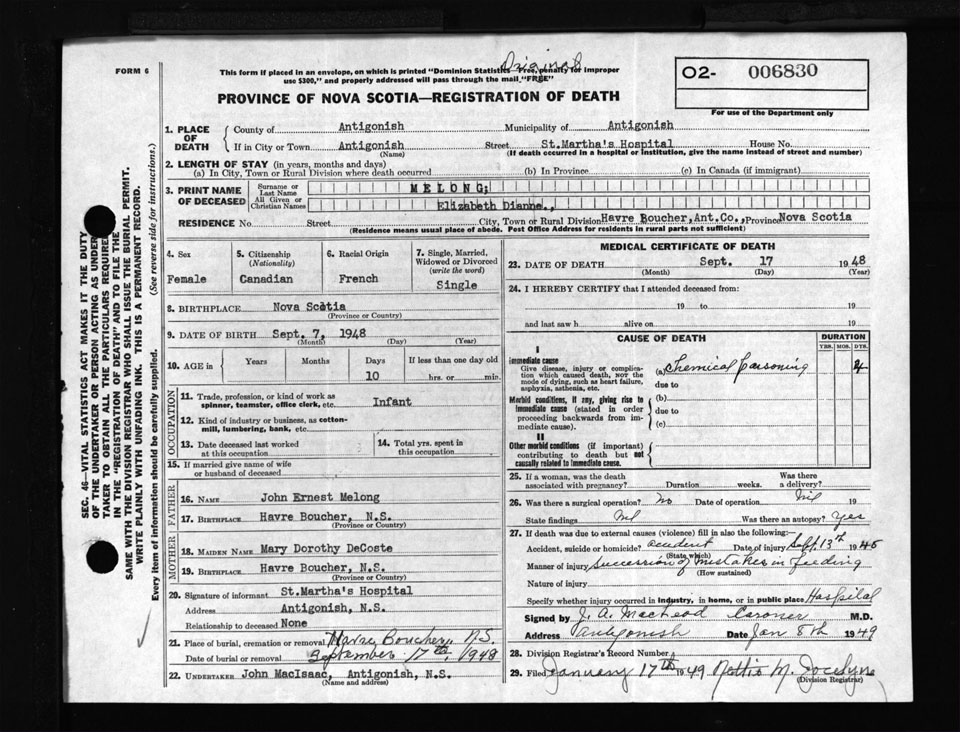 Original
FORM 6
This form if placed in an envelope, on which is printed "Dominion Statistics—Free, penalty for improper
use $300," and properly addressed will pass through the mail "FREE"
02- 006830
PROVINCE OF NOVA SCOTIA—REGISTRATION OF DEATH
For use of the Department only
1. PLACE OF DEATH
County of Antigonish Municipality of Antigonish
If in City or Town Antigonish Street St.Martha's Hospital House No.
(Name) (If death occurred in a hospital or institution, give the name instead of street and number)
2. LENGTH OF STAY (in years, months and days)
(a) In City, Town or Rural Division where death occurred (b) In Province (c) In Canada (if immigrant)
3. PRINT NAME OF DECEASED
Surname or Last Name MELONG;
All Given or Christian Names Elizabeth Dianne.,
RESIDENCE No. Street City, Town or Rural Division Havre Boucher,Ant.Co., Province Nova Scotia
(Residence means usual place of abode. Post Office Address for residents in rural parts not sufficient)
4. Sex
Female
5. Citizenship
(Nationality)
Canadian
6. Racial Origin
French
7. Single, Married,
Widowed or Divorced
(write the word)
Single
8. BIRTHPLACE Nova Scotia
(Province or Country)
9. DATE OF BIRTH Sept. 7, 1948
(Month) (Day) (Year)
10. AGE in Years Months Days If less than one day old
10 hrs. or min.
OCCUPATION
11. Trade, profession, or kind of work as
spinner, teamster, office clerk, etc. Infant
12. Kind of industry or business, as cotton-
mill, lumbering, bank, etc.
13. Date deceased last worked
at this occupation
14. Total yrs. spent in
this occupation
15. If married give name of wife
or husband of deceased
FATHER
16. NAME John Ernest Melong
17. BIRTHPLACE Havre Boucher, N.S.
(Province or Country)
MOTHER
18. MAIDEN NAME Mary Dorothy DeCoste
19. BIRTHPLACE Havre Boucher, N.S.
(Province or Country)
20. Signature of informant St.Martha's Hospital
Address Antigonish, N.S.
Relationship to deceased None
21. Place of burial, cremation or removal Havre Boucher, N.S.
Date of burial or removal September 17th, 1948
22. UNDERTAKER John MacIsaac, Antigonish, N.S.
(Name and address)
MEDICAL CERTIFICATE OF DEATH
23. DATE OF DEATH Sept. 17 1948
(Month) (Day) (Year)
24. I HEREBY CERTIFY that I attended deceased from:
19 to 19
and last saw h alive on 19
CAUSE OF DEATH
DURATION
YRS. MOS. DYS.
I
Immediate cause
Give disease, injury or complica-
tion which caused death, NOT the
mode of dying, such as heart failure,
asphyxia, asthenia, etc.
(a) Chemical poisoning 4
due to
Morbid conditions, if any, giving rise to
immediate cause (stated in order
proceeding backwards from im-
mediate cause).
(b)
due to
(c)
II
Other morbid conditions (if important)
contributing to death but not
causally related to immediate cause.
25. If a woman, was the death
associated with pregnancy? Duration weeks. Was there
a delivery?
26. Was there a surgical operation? no Date of operation Nil 19
State findings Nil Was there an autopsy? Yes
27. If death was due to external causes (violence) fill in also the following:—
Accident, suicide or homicide? accident Date of injury Sept. 13th 1948
(State which)
Manner of injury Succession of mistakes in feeding
(How sustained)
Nature of injury
Specify whether injury occurred in Industry, in home, or in public place Hospital
Signed by J. A. MacLeod Coroner M.D.
Address Antigonish Date Jan 8th 1949
28. Division Registrar's Record Number
29. Filed January 17th 1949 Nettie M. Jocelyn
(Division Registrar)
SEC. 46—VITAL STATISTICS ACT MAKES IT THE DUTY
OF THE UNDERTAKER OR PERSON ACTING AS UNDER-
TAKER TO OBTAIN ALL THE PARTICULARS REQUIRED
IN THE "REGISTRATION OF DEATH" AND TO FILE THE
SAME WITH THE DIVISION REGISTRAR WHO SHALL ISSUE THE BURIAL PERMIT.
WRITE PLAINLY WITH UNFADING INK. THIS IS A PERMANENT RECORD.
Every item of information should be carefully supplied. (See reverse side for instructions.)